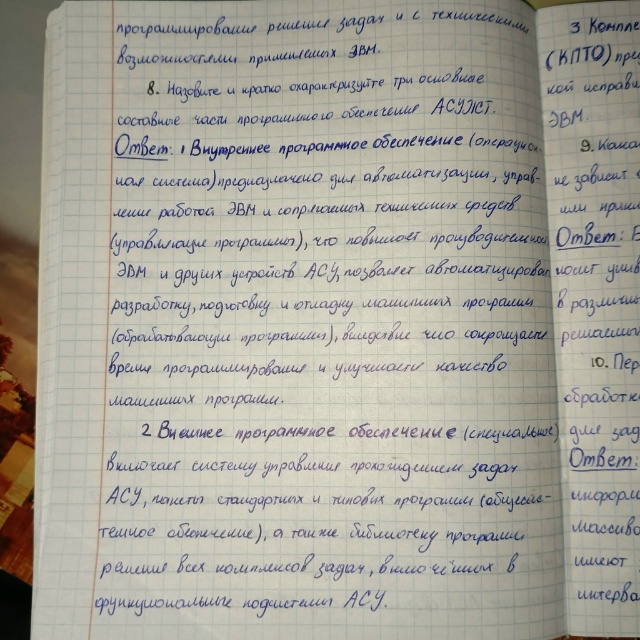 программирования решение задач и с техническими
возможностями применяемых ЭВМ.
8. Назовите и кратко охарактеризуйте три основные
составные части программного обеспечения АСУЖТ.
Ответ: 1 Внутреннее программное обеспечение (операцион-
ная система) предназначено для автоматизации, управ-
ление работой ЭВМ и сопрягаемых технических средств
(управляющие программы), что повышает производительнос
ЭВМ и других устройств АСУ, позволяет автоматизироват
разработку, подготовку и отладку машинных программ
(обрабатывающие программы), вследствие чего сокращается
время программирования и улучшается качество
машинных программ.
2. Внешнее программное обеспечение (специальное)
включает систему управления прохождением задач
АСУ, пакеты стандартных и типовых программ (общесис-
темное обеспечение), а также библиотеку программ
решения всех комплексов задач, включённых в
функциональные подсистемы АСУ.
3 Компле
(КПТО) пре
кой исправн
ЭВМ.
9. Кака
не зависит
или прим
Ответ: Б
носит унив
в различн
решаемы
10. Пер
обработк
для зад
Ответ:
информ
массиво
имеют
интерва